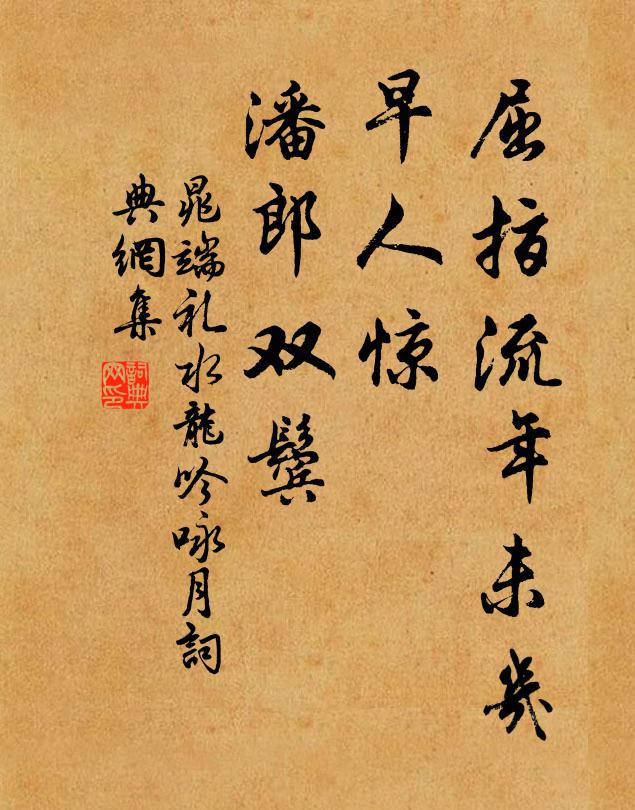 屈指流年未幾
早人惊
潘郎双鬓
晁端礼水龍吟咏月詞
典網集
詞典网印